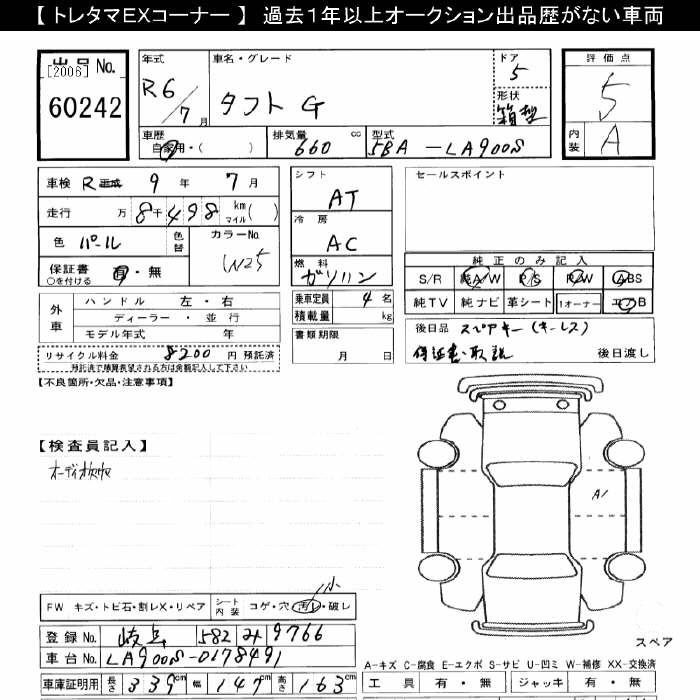 【 トレタマEXコーナー 】 過去１年以上オークション出品歴がない車両
出品 No. [2006] 60242
年式 R6/7月
車名・グレード タフト G
ドア 5
形状 箱型
評価点 5
内装 A
車歴 自家用・( )
排気量 660 cc
型式 5BA-LA900S
車検 R 平成 9年 7月
走行 万 8千498 km マイル( )
色 パール
色替
カラーNo. W25
保証書 ○を付ける 有・無
シフト AT
冷房 AC
燃料 ガソリン
乗車定員 4名
積載量 kg
書類期限 月 日
セールスポイント
純正のみ記入
S/R 純A/W P/S P/W ABS
純TV 純ナビ 革シート 1オーナー エアB
後日品 スペアキー(キーレス)
保証書・取説 後日渡し
外車 ハンドル 左・右
ディーラー・並行
モデル年式 年
リサイクル料金 8200 円 預託済
預託済で陸質表望される方は金額記入して下さい
【不良箇所・欠品・注意事項】
【検査員記入】
A1
FW キズ・トビ石・割レX・リペア
シート内装 コゲ・穴・汚レ・破し 小
登録No. 岐阜 582 み 9766
車台No. LA900S-0178491
車庫証明用 長さ 339cm 幅 147cm 高さ 163cm
スペア
A-キズ C-腐食 E-エクボ S-サビ U-凹ミ W-補修 XX-交換済
工具 有・無 ジャッキ 有・無